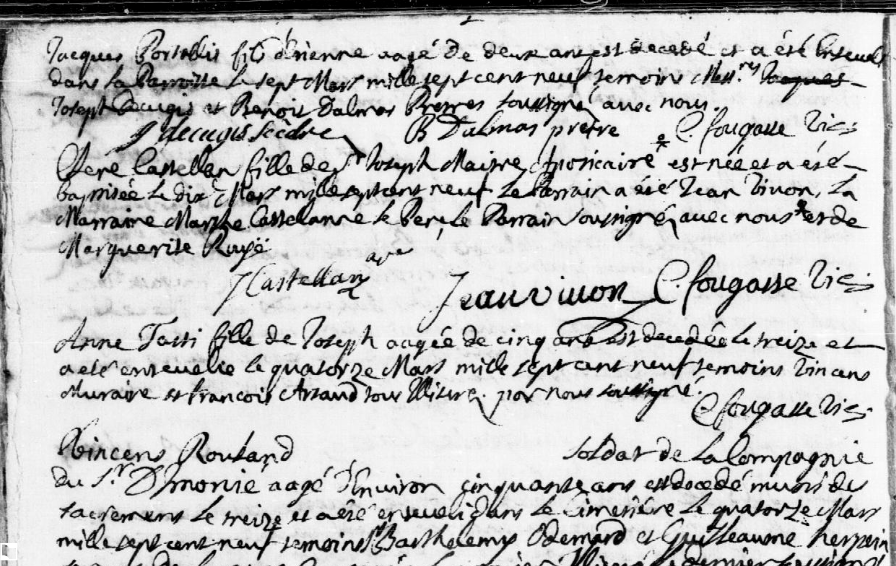 Jacques Portallis fils d'etienne aagé de deux ans est decedé et a été Enseveli
dans la Parroisse le sept Mars mille sept cent neuf temoins Mess.rs Jacques
Joseph Decugis et Benoit Dalmas Pretres soussigné avec nous.
J decugis secdre B Dalmas pretre C. fougasse Vic
Castellan fille de Sr Joseph Maitre Apoticaire * est née et a été
baptisée le dix Mars mille sept cent neuf le Parrain a été Jean Vivon, La
Marraine Marthe Castellanne le Pere le Parrain soussigné avec nous * et de
Marguerite
J Castellan Jean vivon C. fougasse Vic
Anne Tassi fille de Joseph aagée de cinq ans est decedée le treize et
a eté ensevelie le quatorze Mars mille sept cent neuf temoins Vincens
Muraire et francois Artaud par nous soussigné.
C fougasse Vic
Vincens Roubaud soldat de la Compagnie
du Sr aagé d'Environ cinquante ans est decedé muni des
sacremens le treize et a été enseveli dans le Cimetiere le quatorze Mars
mille sept cent neuf temoins Barthelemy Odemard et Guilleaume